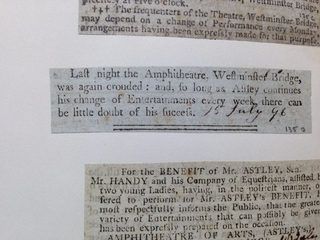 precisely at Five o'clock.
††† The frequenters of the Theatre, Westminster Bridge,
may depend on a change of Performance every Monday,
arrangements having been expressly made for that purpose
Last night the Amphitheatre, Westminster Bridge,
was again crouded: and, so long as Astley continues
his change of Entertainments every week, there can
be little doubt of his success. 15 July 96
For the BENEFIT of Mr. ASTLEY, Sen.
Mr. HANDY and his Company of Equestrians, assisted by
two young Ladies, having, in the politest manner, of-
fered to perform for Mr. ASTLEY's BENEFIT, he
most respectfully informs the Public, that the greatest
variety of Entertainments that can possibly be given
has been expressly prepared on the occasion.
AMPHITHEATRE OF ARTS, (ASTLEY's)